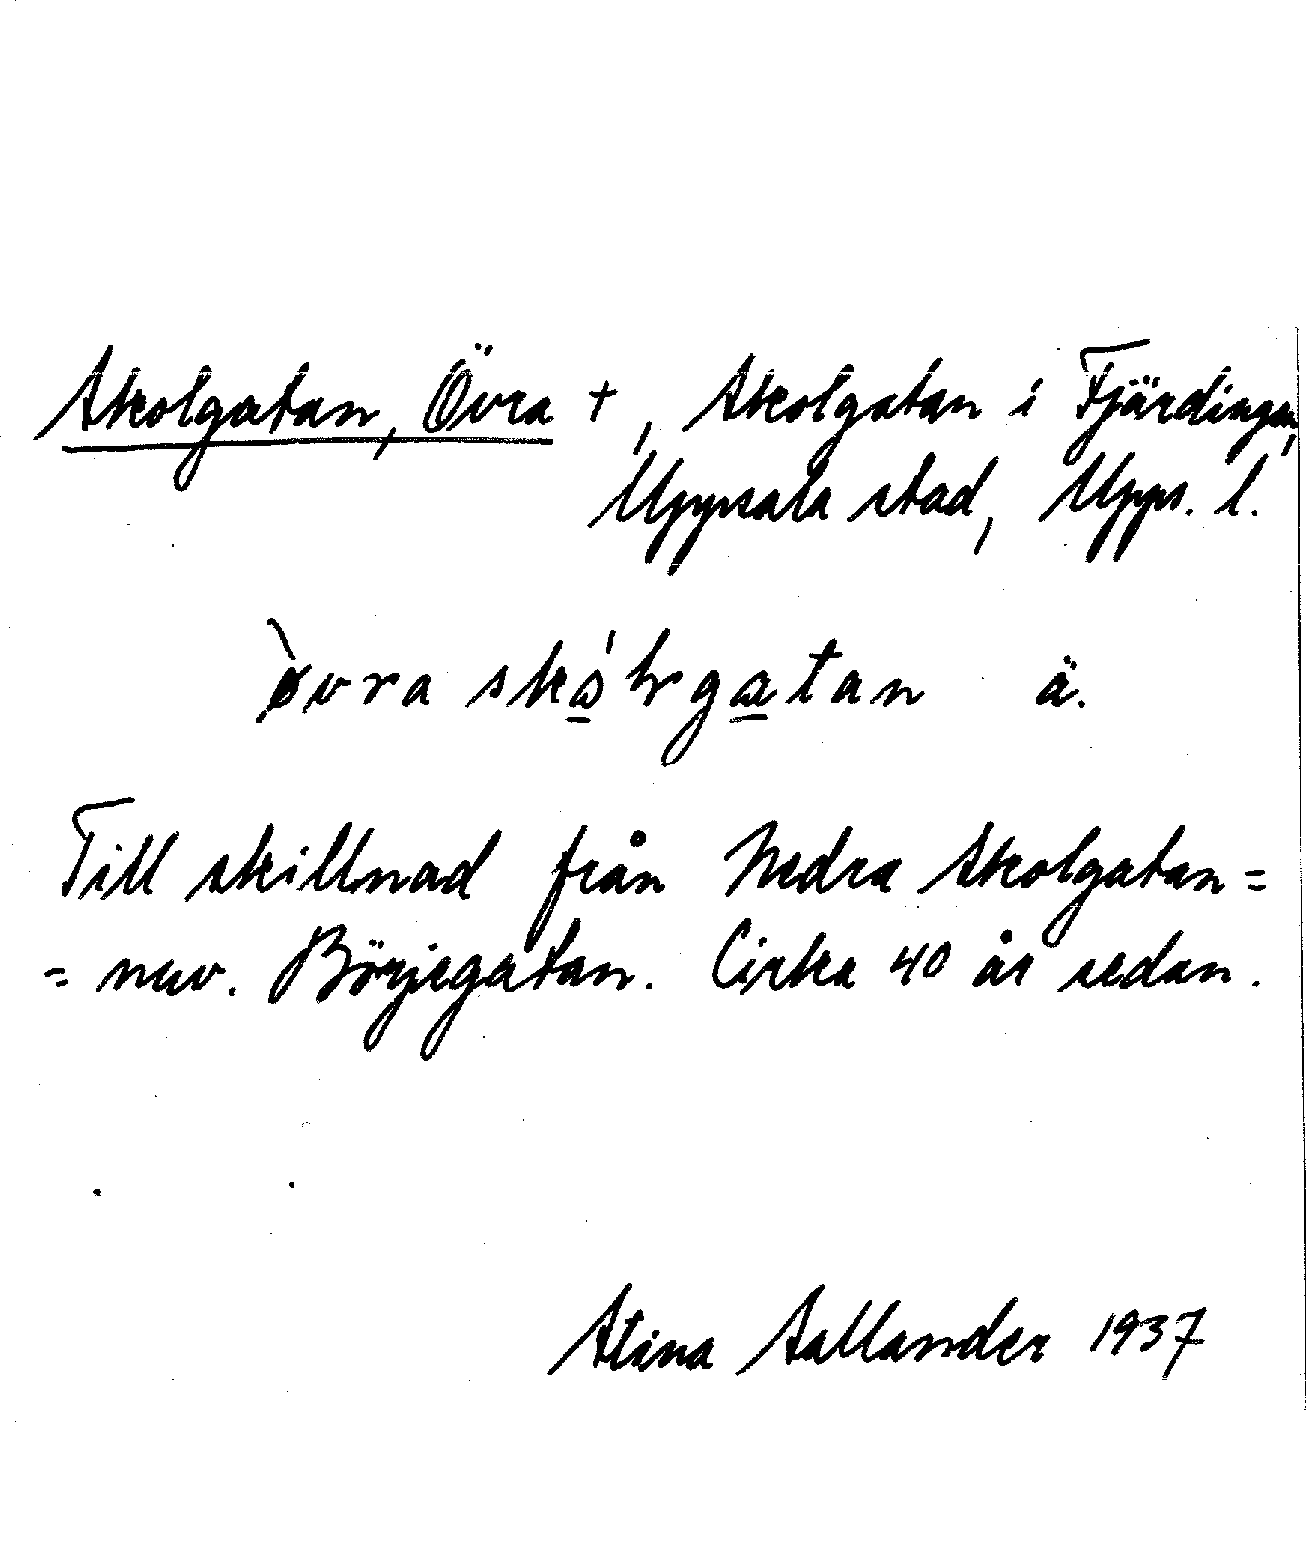 Skolgatan, Övra +, Skolgatan i Fjärdingen,
Uppsala stad, Upps. l.
ä.
Till skillnad från Nedra Skolgatan =
= nuv. Börjegatan. Cirka 40 år sedan.
Stina Sallander 1937